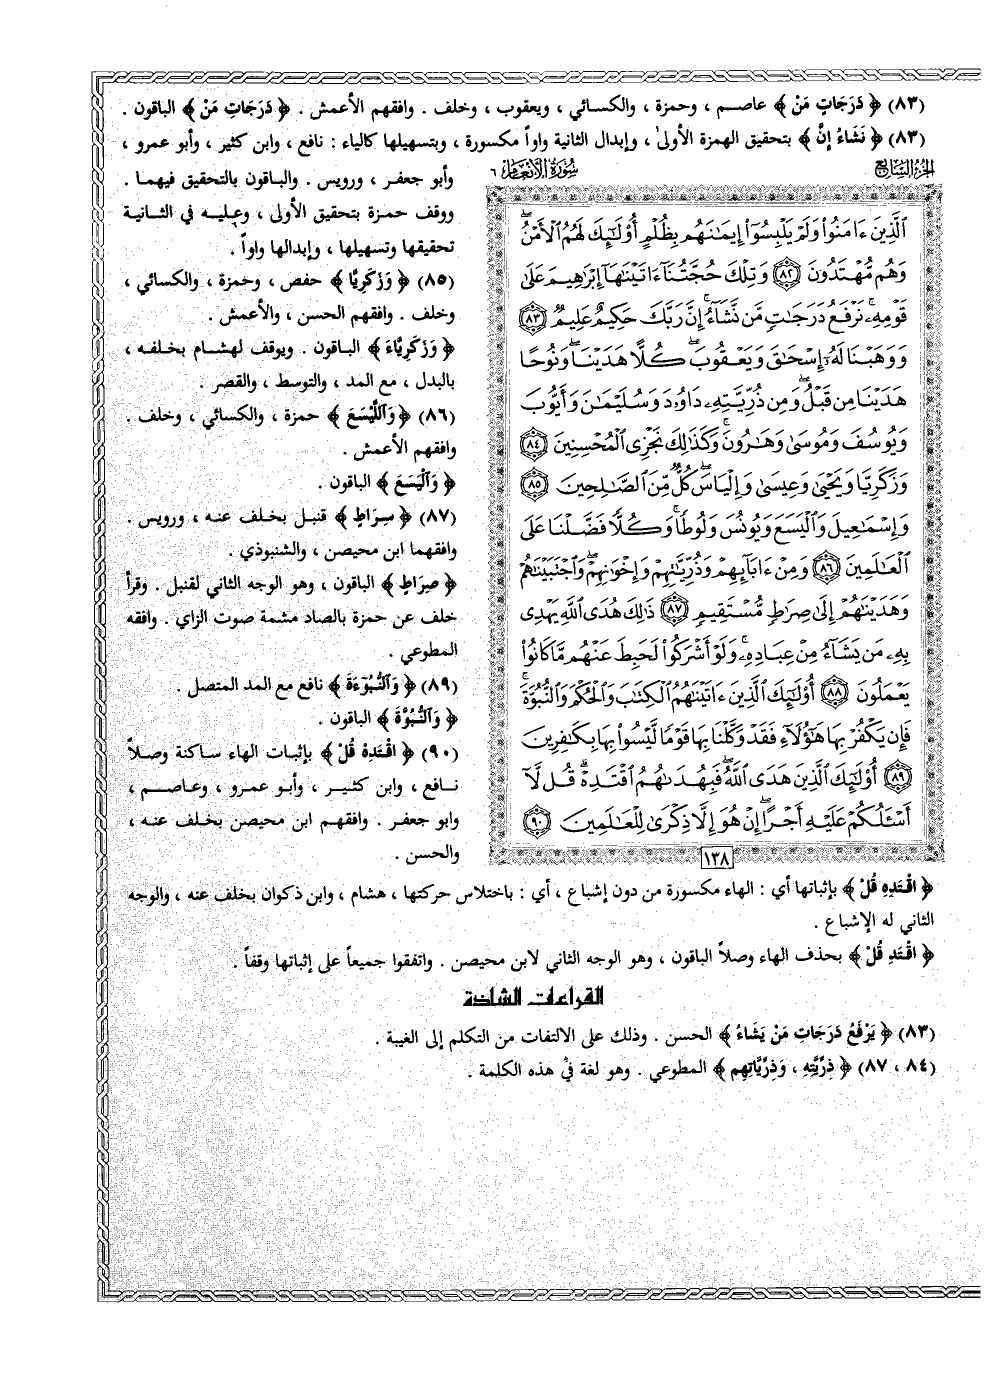 (٨٣) ﴿ دَرَجَاتٍ مَنْ ﴾ عاصم ، وحمزة ، والكسائي ، ويعقوب ، وخلف . وافقهم الأعمش . ﴿ دَرَجَاتِ مَنْ ﴾ الباقون .
(٨٣) ﴿ نَشَاءُ إنَّ ﴾ بتحقيق الهمزة الأولىٰ ، وإبدال الثانية واواً مكسورة ، وبتسهيلها كالياء : نافع ، وابن كثير ، وأبو عمرو ،
وأبو جعفر ، ورويس . والباقون بالتحقيق فيهما .
ووقف حمزة بتحقيق الأولى ، وعليه في الثانية
تحقيقها وتسهيلها ، وإبدالها واواً .
(٨٥) ﴿ وَزَكَرِيَّا ﴾ حفص ، وحمزة ، والكسائي ،
وخلف . وافقهم الحسن ، والأعمش .
﴿ وَزَكَرِيَّاءَ ﴾ الباقون . ويوقف لهشام بخلفه ،
بالبدل ، مع المد ، والتوسط ، والقصر .
(٨٦) ﴿ وَاللَّيْسَعَ ﴾ حمزة ، والكسائي ، وخلف .
وافقهم الأعمش .
﴿ وَالْيَسَعَ ﴾ الباقون .
(٨٧) ﴿ سِرَاطٍ ﴾ قنبل بخلف عنه ، ورويس .
وافقهما ابن محيصن ، والشنبوذي .
﴿ صِرَاطٍ ﴾ الباقون ، وهو الوجه الثاني لقنبل . وقرأ
خلف عن حمزة بالصاد مشمة صوت الزاي . وافقه
المطوعي .
(٨٩) ﴿ وَالنُّبُوٓءَةَ ﴾ نافع مع المد المتصل .
﴿ وَالنُّبُوَّةَ ﴾ الباقون .
(٩٠) ﴿ اقْتَدِهْ قُلْ ﴾ بإثبات الهاء ساكنة وصلاً
نافع ، وابن كثير ، وأبو عمرو ، وعاصم ،
وابو جعفر . وافقهم ابن محيصن بخلف عنه ،
والحسن .
الجزء السابع
سورة الأنعام ٦
ٱلَّذِينَ ءَامَنُوا۟ وَلَمْ يَلْبِسُوٓا۟ إِيمَٰنَهُم بِظُلْمٍ أُو۟لَٰٓئِكَ لَهُمُ ٱلْأَمْنُ
وَهُم مُّهْتَدُونَ ٨٢ وَتِلْكَ حُجَّتُنَآ ءَاتَيْنَٰهَآ إِبْرَٰهِيمَ عَلَىٰ
قَوْمِهِۦ نَرْفَعُ دَرَجَٰتٍ مَّن نَّشَآءُ إِنَّ رَبَّكَ حَكِيمٌ عَلِيمٌ ٨٣
وَوَهَبْنَا لَهُۥٓ إِسْحَٰقَ وَيَعْقُوبَ كُلًّا هَدَيْنَا وَنُوحًا
هَدَيْنَا مِن قَبْلُ وَمِن ذُرِّيَّتِهِۦ دَاوُۥدَ وَسُلَيْمَٰنَ وَأَيُّوبَ
وَيُوسُفَ وَمُوسَىٰ وَهَٰرُونَ وَكَذَٰلِكَ نَجْزِى ٱلْمُحْسِنِينَ ٨٤
وَزَكَرِيَّا وَيَحْيَىٰ وَعِيسَىٰ وَإِلْيَاسَ كُلٌّ مِّنَ ٱلصَّٰلِحِينَ ٨٥
وَإِسْمَٰعِيلَ وَٱلْيَسَعَ وَيُونُسَ وَلُوطًا وَكُلًّا فَضَّلْنَا عَلَى
ٱلْعَٰلَمِينَ ٨٦ وَمِنْ ءَابَآئِهِمْ وَذُرِّيَّٰتِهِمْ وَإِخْوَٰنِهِمْ وَٱجْتَبَيْنَٰهُمْ
وَهَدَيْنَٰهُمْ إِلَىٰ صِرَٰطٍ مُّسْتَقِيمٍ ٨٧ ذَٰلِكَ هُدَى ٱللَّهِ يَهْدِى
بِهِۦ مَن يَشَآءُ مِنْ عِبَادِهِۦ وَلَوْ أَشْرَكُوا۟ لَحَبِطَ عَنْهُم مَّا كَانُوا۟
يَعْمَلُونَ ٨٨ أُو۟لَٰٓئِكَ ٱلَّذِينَ ءَاتَيْنَٰهُمُ ٱلْكِتَٰبَ وَٱلْحُكْمَ وَٱلنُّبُوَّةَ
فَإِن يَكْفُرْ بِهَا هَٰٓؤُلَآءِ فَقَدْ وَكَّلْنَا بِهَا قَوْمًا لَّيْسُوا۟ بِهَا بِكَٰفِرِينَ
٨٩ أُو۟لَٰٓئِكَ ٱلَّذِينَ هَدَى ٱللَّهُ فَبِهُدَىٰهُمُ ٱقْتَدِهْ قُل لَّآ
أَسْـَٔلُكُمْ عَلَيْهِ أَجْرًا إِنْ هُوَ إِلَّا ذِكْرَىٰ لِلْعَٰلَمِينَ ٩٠
١٣٨
﴿ اقْتَدِهِ قُلْ ﴾ بإثباتها أي : الهاء مكسورة من دون إشباع ، أي : باختلاس حركتها ، هشام ، وابن ذكوان بخلف عنه ، والوجه
الثاني له الإشباع .
﴿ اقْتَدِ قُلْ ﴾ بحذف الهاء وصلاً الباقون ، وهو الوجه الثاني لابن محيصن . واتفقوا جميعاً على إثباتها وقفاً .
القراءات الشاذة
(٨٣) ﴿ يَرْفَعُ دَرَجَاتِ مَنْ يَشَاءُ ﴾ الحسن . وذلك على الالتفات من التكلم إلى الغيبة .
(٨٤ ، ٨٧) ﴿ ذِرِّيَّتِهِ ، وَذِرِّيَّاتِهِم ﴾ المطوعي . وهو لغة في هذه الكلمة .